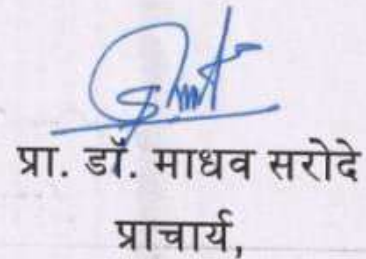 प्रा. डॉ. माधव सरोदे
प्राचार्य,